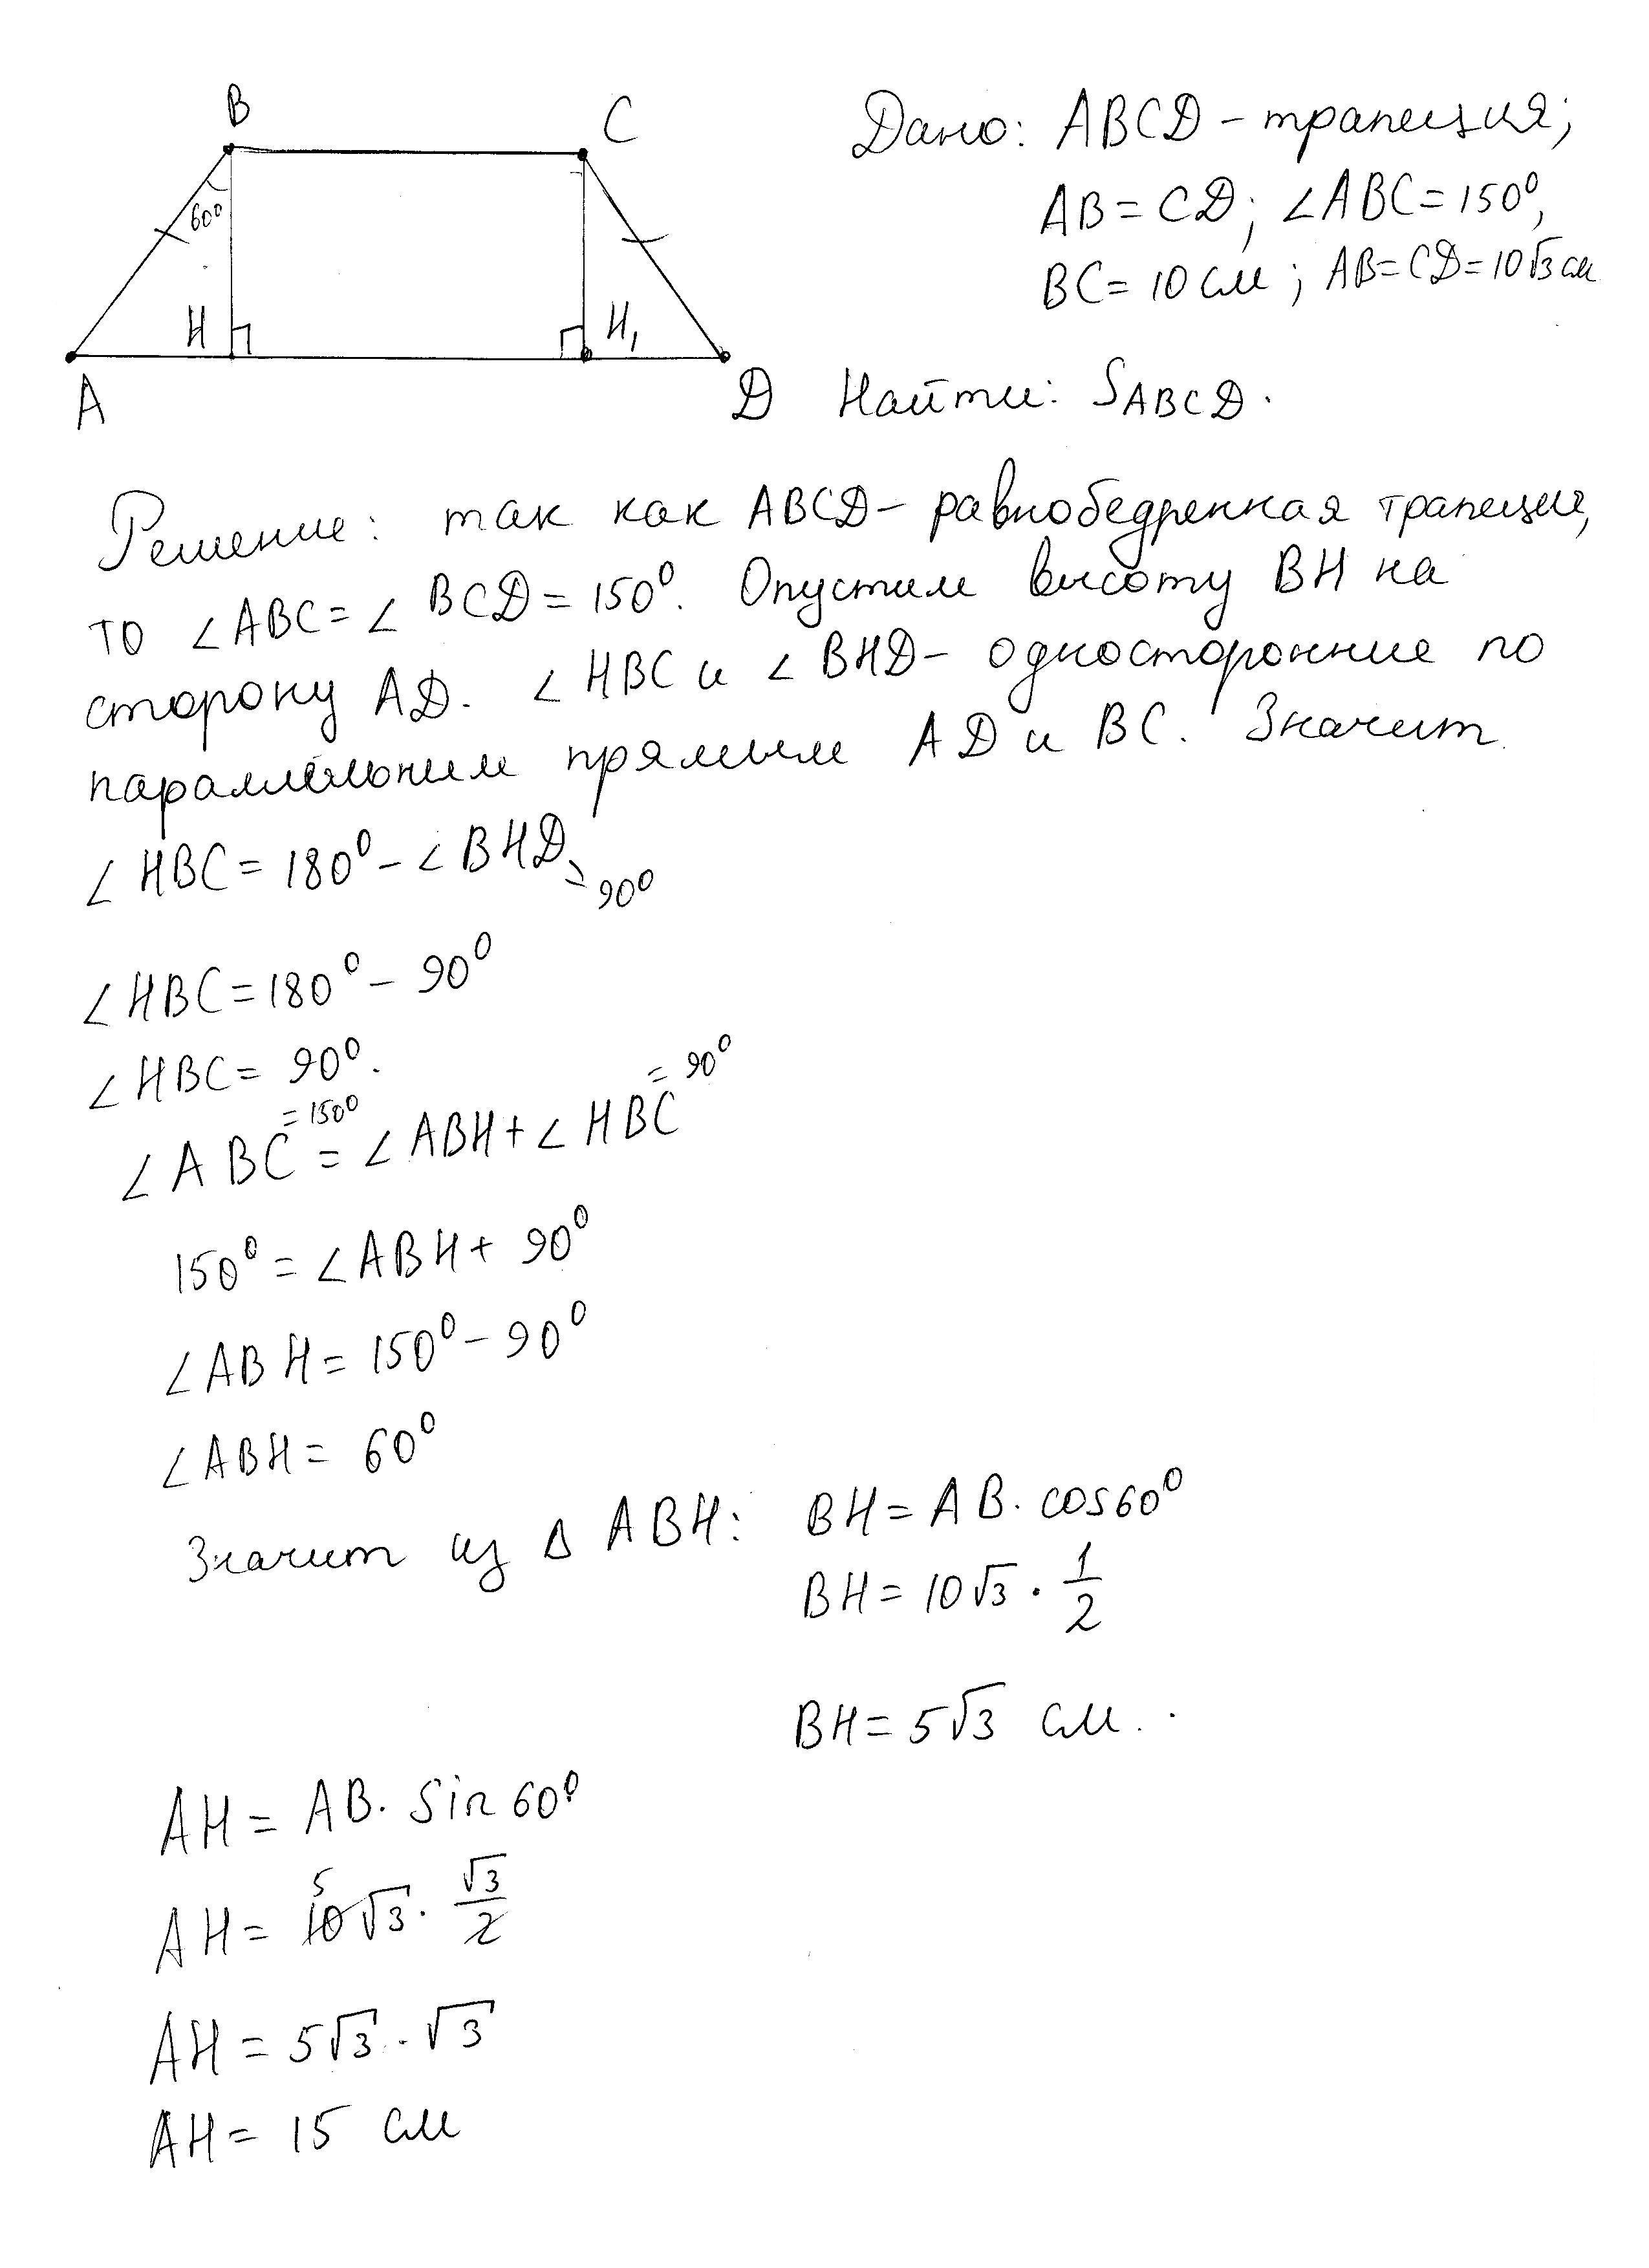 B
C
60°
H
H₁
A
D
Дано: ABCD – трапеция;
AB = CD; ∠ABC = 150°,
BC = 10 см; AB = CD = 10√3 см
Найти: S ABCD.
Решение: так как ABCD – равнобедренная трапеция,
то ∠ABC = ∠BCD = 150°. Опустим высоту BH на
сторону AD. ∠HBC и ∠BHD – односторонние по
параллельным прямым AD и BC. Значит
∠HBC = 180° – ∠BHD = 90°
∠HBC = 180° – 90°
∠HBC = 90°.
= 150° = 90°
∠ABC = ∠ABH + ∠HBC
150° = ∠ABH + 90°
∠ABH = 150° – 90°
∠ABH = 60°
Значит из Δ ABH: BH = AB · cos 60°
BH = 10√3 · 1/2
BH = 5√3 см.
AH = AB · sin 60°
5
AH = 10√3 · √3/2
AH = 5√3 · √3
AH = 15 см